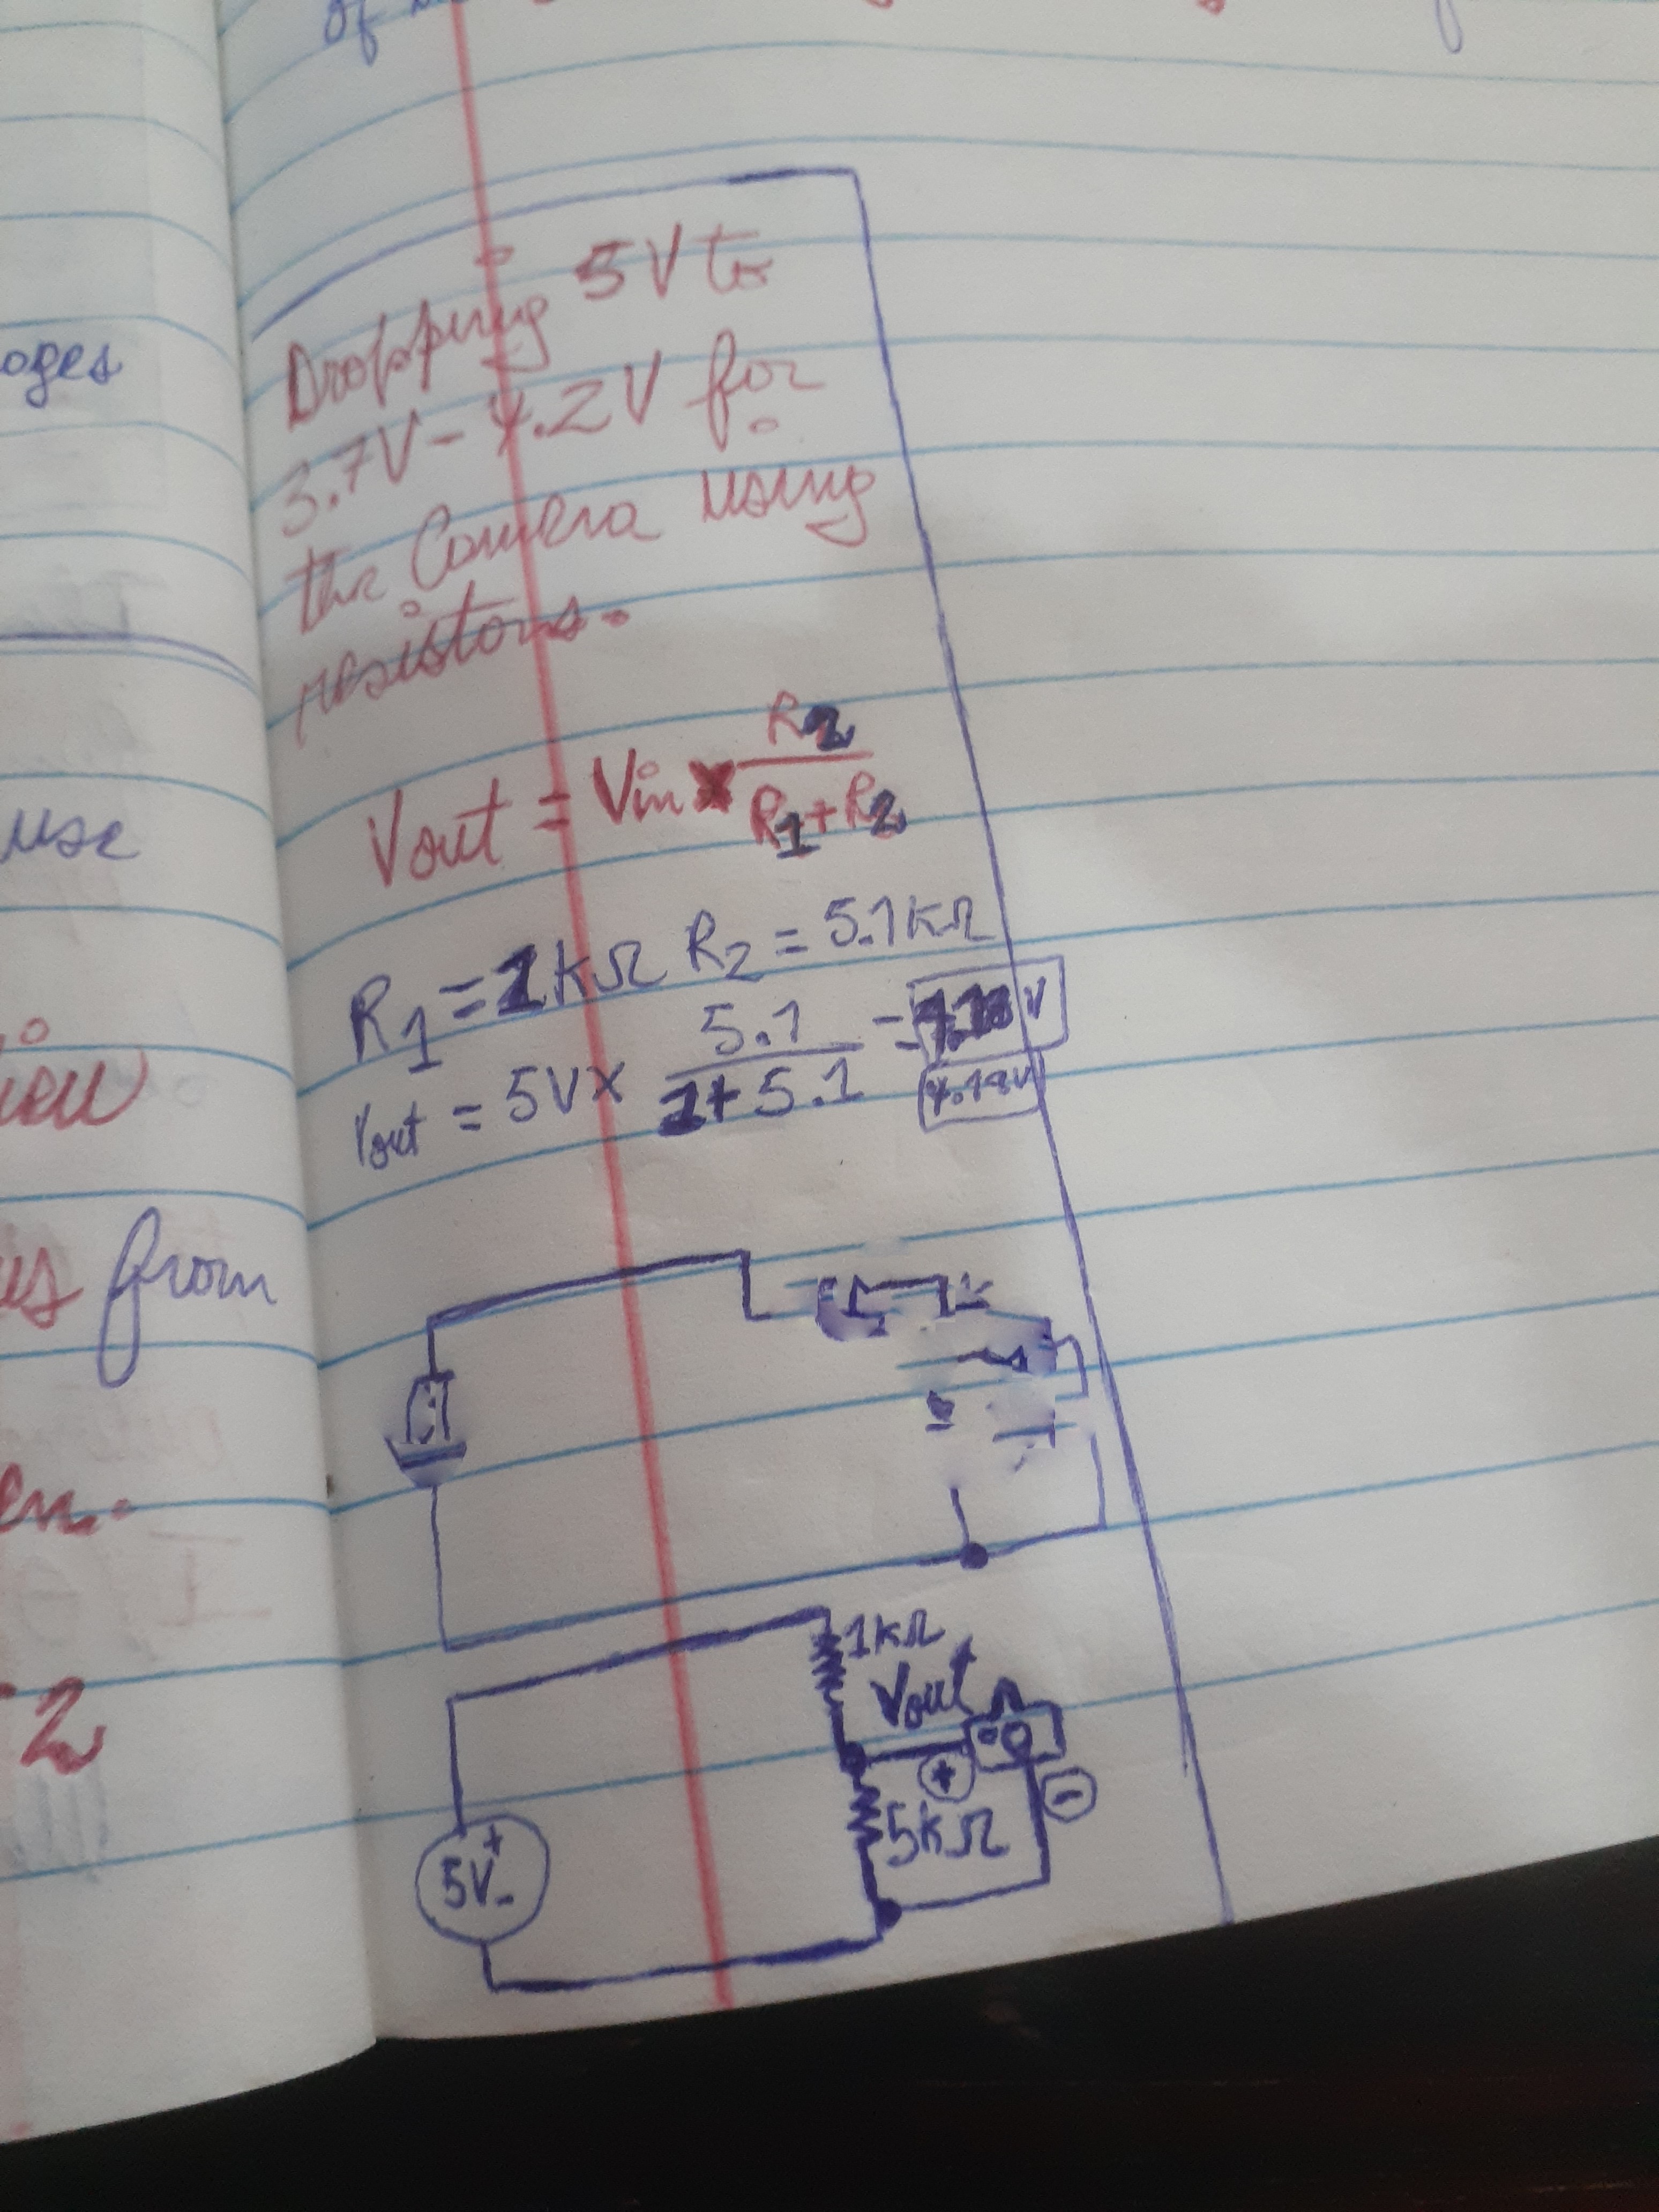 of
oges
use
from
en.
2
Dropping 5V to
3.7V - 4.2V for
the Camera using
resistors.
Vout = Vin × R2 / R1 + R2
R1 = 1kΩ R2 = 5.1kΩ
Vout = 5V × 5.1 / 1 + 5.1 = 4.18V
4.18V
1kΩ
Vout
+
-
5kΩ
5V
+
-